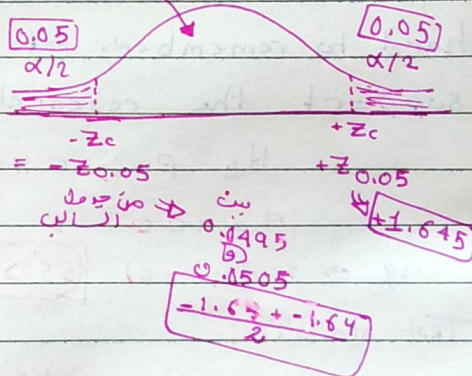 0.05
α/2
0.05
α/2
-Zc
+Zc
= -Z0.05
+Z0.05
من جدول
السالب
بين
0.0495
و
0.0505
+1.645
-1.65 + -1.64
2